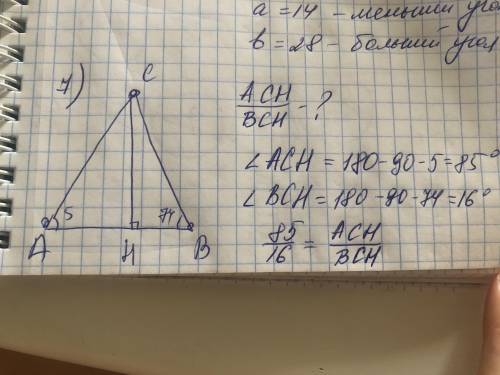 a = 14 - меньший угол
b = 28 - больший угол
7)
C
ACH
BCH - ?
∠ACH = 180-90-5=85°
∠BCH = 180-90-74=16°
5
74
A
H
B
85/16 = ACH/BCH